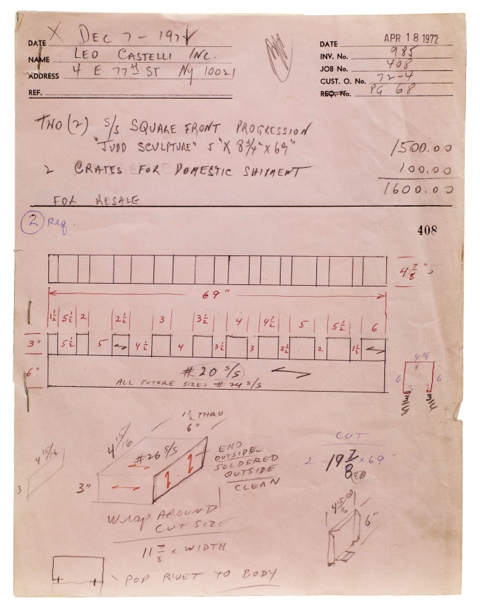 DATE X DEC 7-197
NAME LEO CASTELLI INC.
ADDRESS 4 E 77TH ST NY 10021
REF.
DATE APR 18 1972
INV. No. 985
JOB No. 408
CUST. O. No. 72-4
REQ. No. PG 68
TWO (2) S/S SQUARE FRONT PROGRESSION
"JUDD SCULPTURE" 5" X 8 3/4" X 69" 1500.00
2 CRATES FOR DOMESTIC SHIPMENT 100.00
1600.00
FOR RESALE
2 Req. 408
4 7/8"
69"
1 1/2 5 1/2 2 2 1/2 3 3 1/2 4 4 1/2 5 5 1/2 6
3" 5 1/2 5 4 1/2 4 3 1/2 3 2 1/2 2 1 1/2
6" #20 S/S
ALL FUTURE SIZES #24 S/S
6 6
1 1/2 THRU
6"
4 15/16
#26 S/S
3"
END
OUTSIDE
SOLDERED
OUTSIDE
CLEAN
4 15/16
3
CUT
2 19 7/8 x 69"
6"
WRAP AROUND
CUT SIZE
11 7/8 x WIDTH
POP RIVET TO BODY